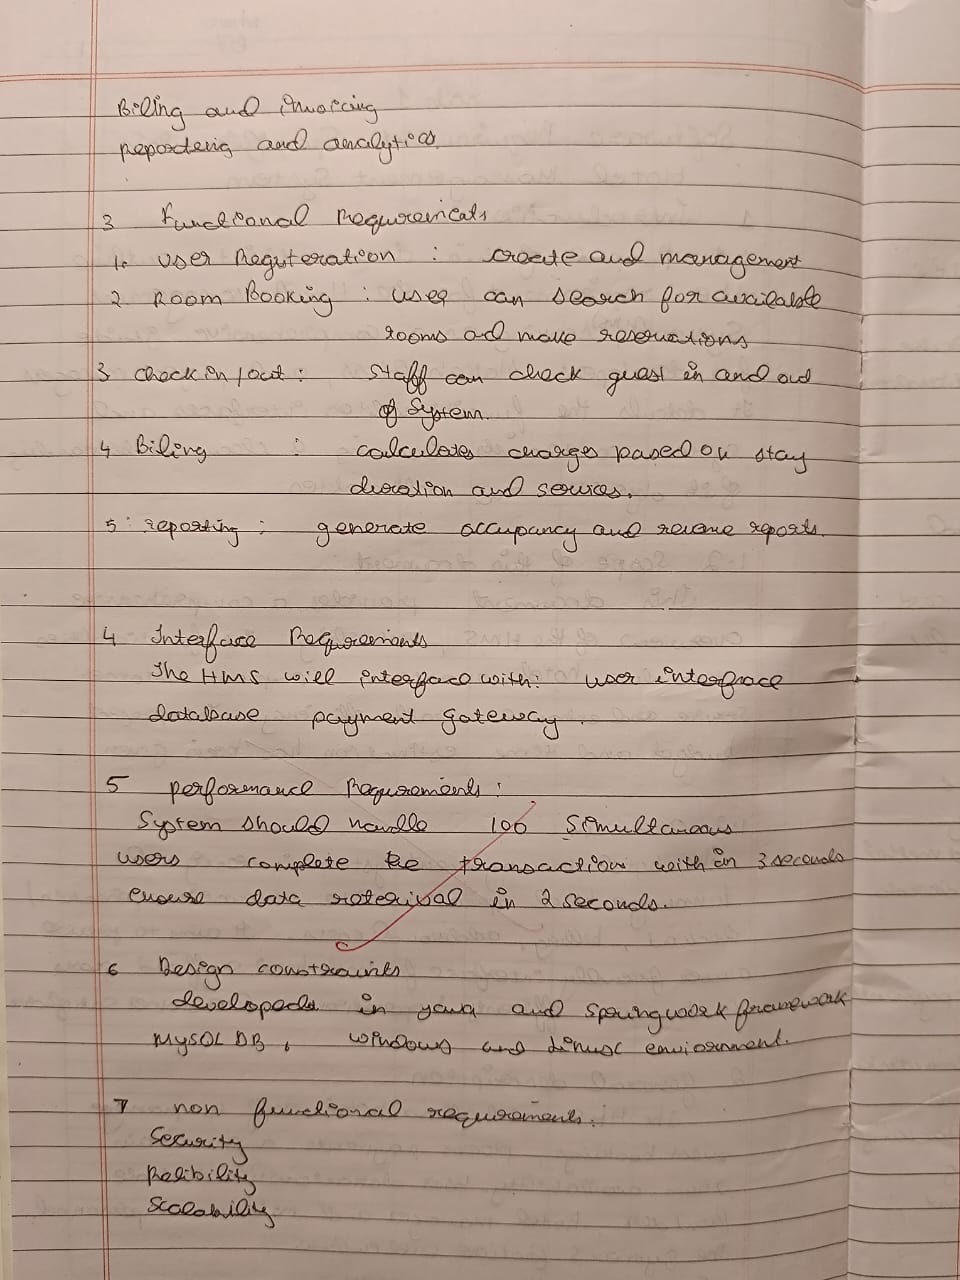 Biling and invoicing
reporteing and analytics
3 Functional Requirements
1. User Registeration : create and management
2 Room Booking : user can search for available
rooms ad make reservations
3 check in / out : staff can check guest in and out
of System.
4 Biling : calculates charges pased on stay
duration and services.
5 : reporting : generate occupancy and revenue reports.
4 Interface Requirements
The HMS will interface with : user interface
database payment gateway.
5 performance Requirements :
System should handle 100 Simultaneous
users complete the transaction with in 3 seconds
ensure data reterival in 2 seconds.
6 Design constraints
developed in java and springwork framework
MySQL DB, windows and Linux enviornment.
7 non functional requirements.
Security
Relibility
Scalability